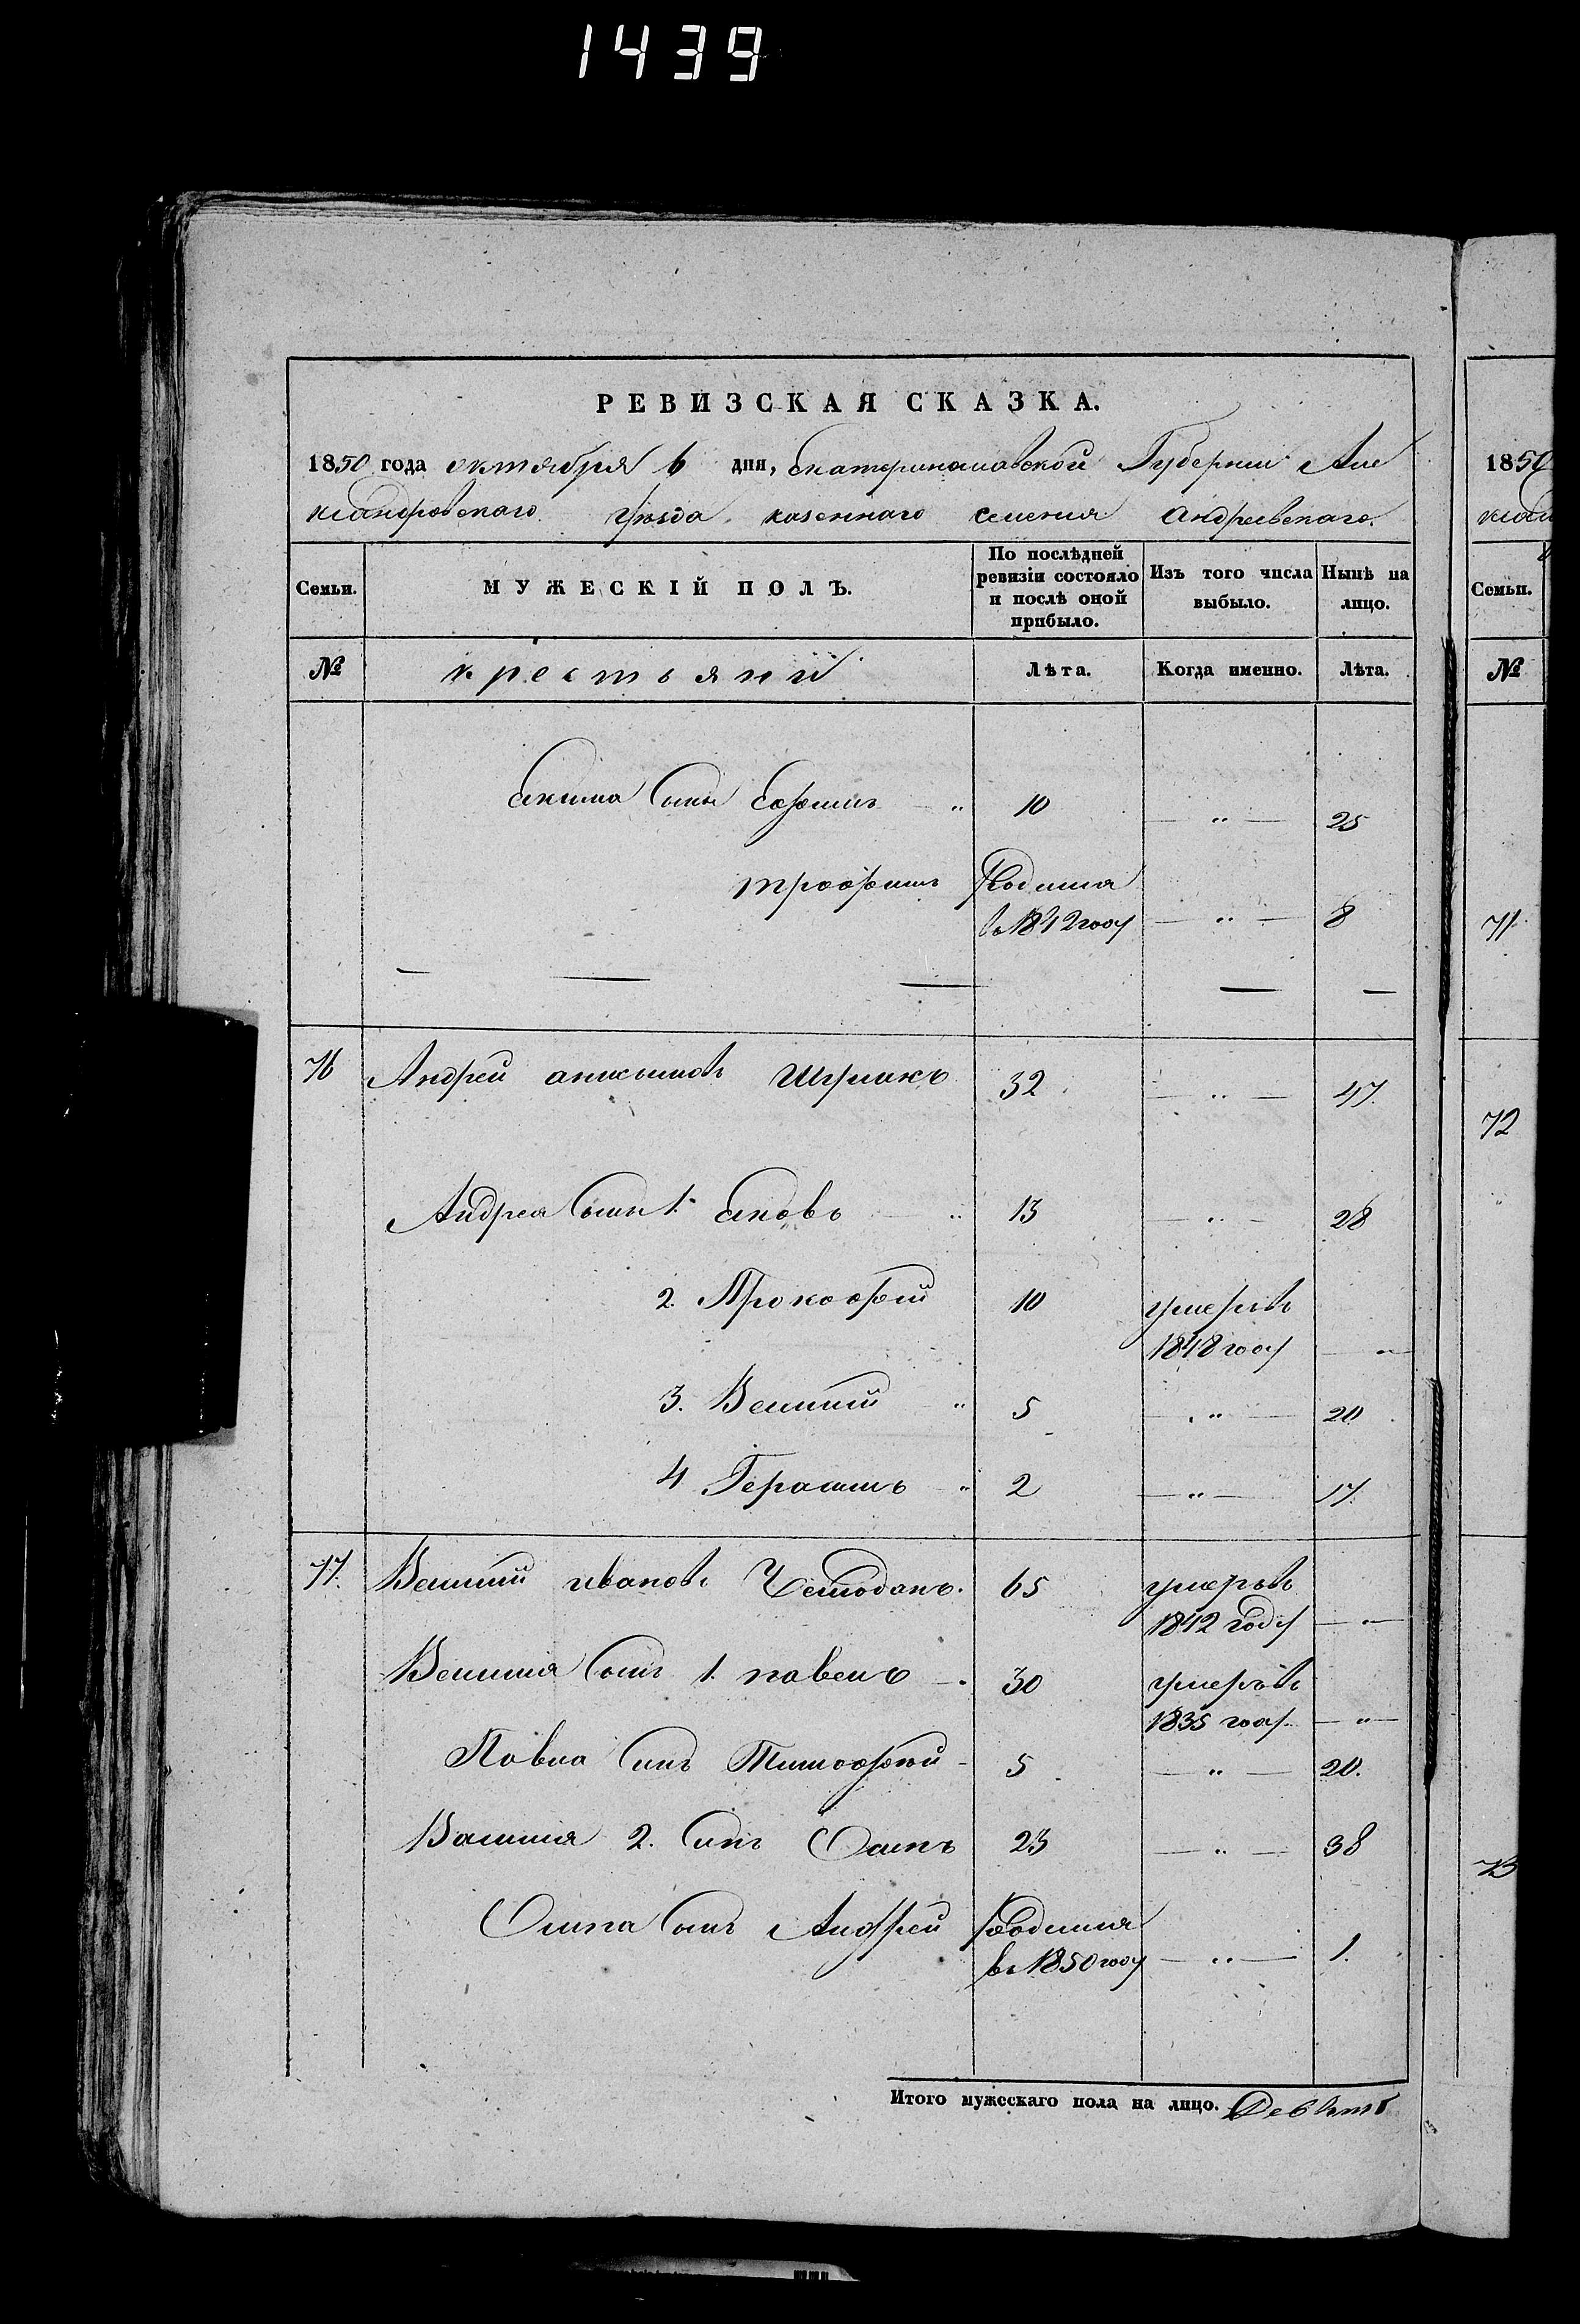 1439
РЕВИЗСКАЯ СКАЗКА.
1850 года октября 6 дня, Екатеринославской Губернии Але
ксандровского уѣзда казенного селения Андреевского.
Семьи. МУЖЕСКІЙ ПОЛЪ. По послѣдней ревизіи состояло и послѣ оной прибыло. Изъ того числа выбыло. Нынѣ на лицо.
№ крестьяни Лѣта. Когда именно. Лѣта.
Екима сынъ Ефимъ " 10 — " — 25
трофимъ Родился
в 1842 году — " — 8
76 Андрей Шулякъ 32 — " — 47
Андрея сынъ 1. Ековъ " 13 — " — 28
2. Прокофей 10 умеръ въ
1848 году — " —
3. Василий " 5 — " — 20
4 Герасимъ " 2 — " — 17
77. Василий ивановъ Чемоданъ. 65 умеръ въ
1842 году — " —
Василия сынъ 1. павелъ 30 умеръ въ
1835 году — " —
Павла сынъ Тимофей 5 — " — 20.
Василия 2. сынъ Осипъ 23 — " — 38
Осипа сынъ Андрей Родился
в 1850 году — " — 1.
Итого мужескаго пола на лицо. Девять
1850
Семьи.
№
71
72
73